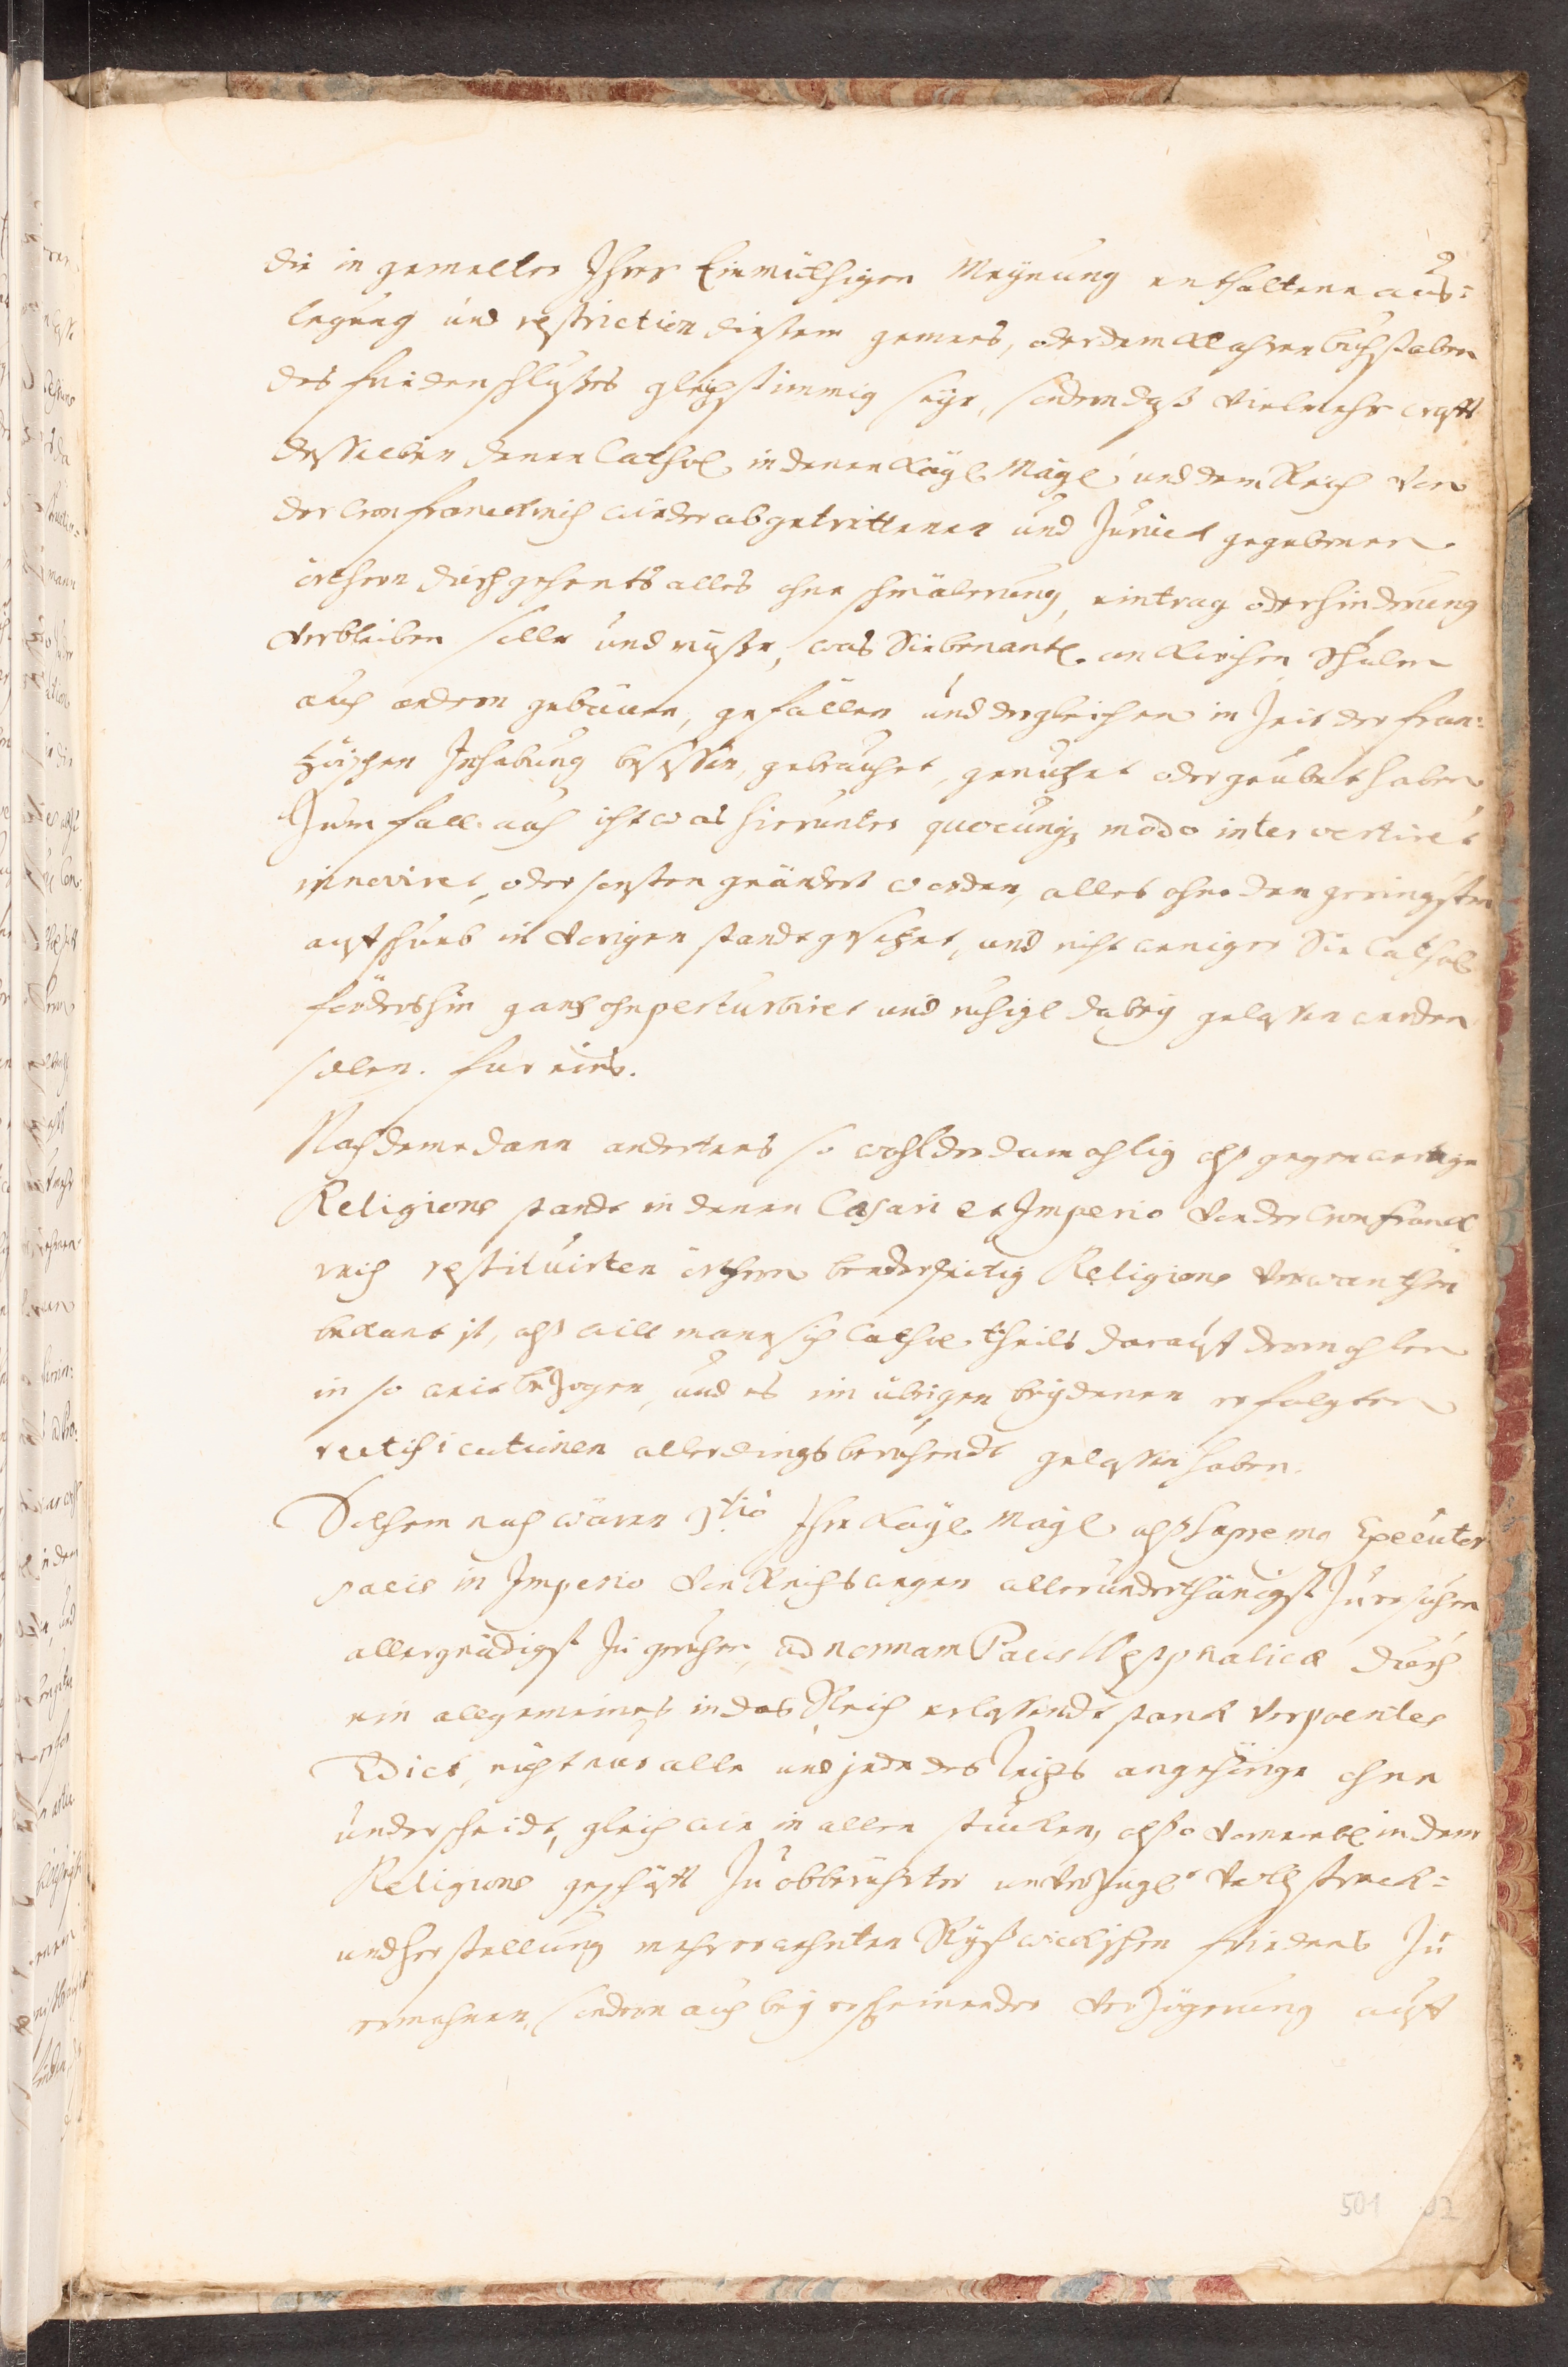 2
die in gemelter Ihrer Einmüthigen Meÿnung enthaltene aus=
legung und restriction diesem gemees, oder dem klahren buchstaben
des fridenschlußes gleichstimmig seÿe, sondern daß Vielmehr crafft
desselben denen Cathol. in denen Kaÿl. Maÿl. und dem Reich von
der Cron franckreich wider abgetrettenen und Zurück gegebenen
örthern durchgehents alles ohne schmälerung, eintrag oder hinderung
Verbleiben solle und müße, was Sie benantl. an Kirchen, Schulen
auch andern gebäuen, gefällen und dergleichen in Zeit der fran=
zösischen Inhabung besessen, gebrauchet, genutzet oder geübet haben
Zum fall auch ichtwas hierunter quocunq; modo intervertiret
innoviret, oder sonsten geändert worden, alles ohne den geringsten
auffschub in Vorigen standt gesetzet, und nicht weniger Sie Cathol.
fördershin gantz ohnperturbiret und ruhigl. dabeÿ gelassen werden
sollen. fur eins.
Nachdeme dann andertens so wohl der damahlig alß gegenwertige
Religions standt in denen Cæsari et Imperio Von der Cron franck
reich restituirten örthern beederseitig Religions Verwanthen
bekant ist, alß will mann sich Cathol. theils darauff dermahlen
in so weit bezogen, und es im übrigen beÿ denen erfolgten
ratificationen allerdings beruhendt gelassen haben.
Solchem nach wären 3tio Ihre Kaÿl. Maÿl. alß Supremo Executor
pacis in Imperio Von Reichs wegen allerunderthänigst Zu ersuchen
allergnädigst Zu geruhen, ad normam Pacis Westphalicæ durch
ein allgemeines in das Reich erlassendt stark Verpoentes
Edict, nicht nur alle und jede des Reichs angehörige ohne
underscheidt, gleich wie in allen stucken, alßo Vornembl. in dem
Religions geschäfft Zu obberührter unverzügl. Vollstreck=
und herstellung mehrerwehnten Rÿßwickischen friedens Zu
ermahnen, sondern auch beÿ erscheinender Verzögerung auff
501 02